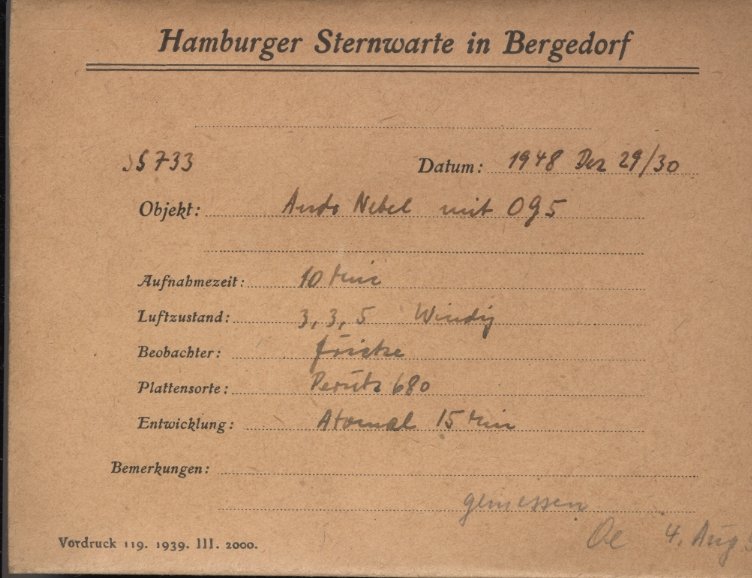 Hamburger Sternwarte in Bergedorf
S 733 Datum: 1948 Dez 29/30
Objekt: Andr Nebel mit OG5
Aufnahmezeit: 10 Min
Luftzustand: 3, 3, 5 Windig
Beobachter: Fricke
Plattensorte: Perutz 680
Entwicklung: Atomal 15 Min
Bemerkungen:
gemessen
Oe 4. Aug
Vordruck 119. 1939. III. 2000.